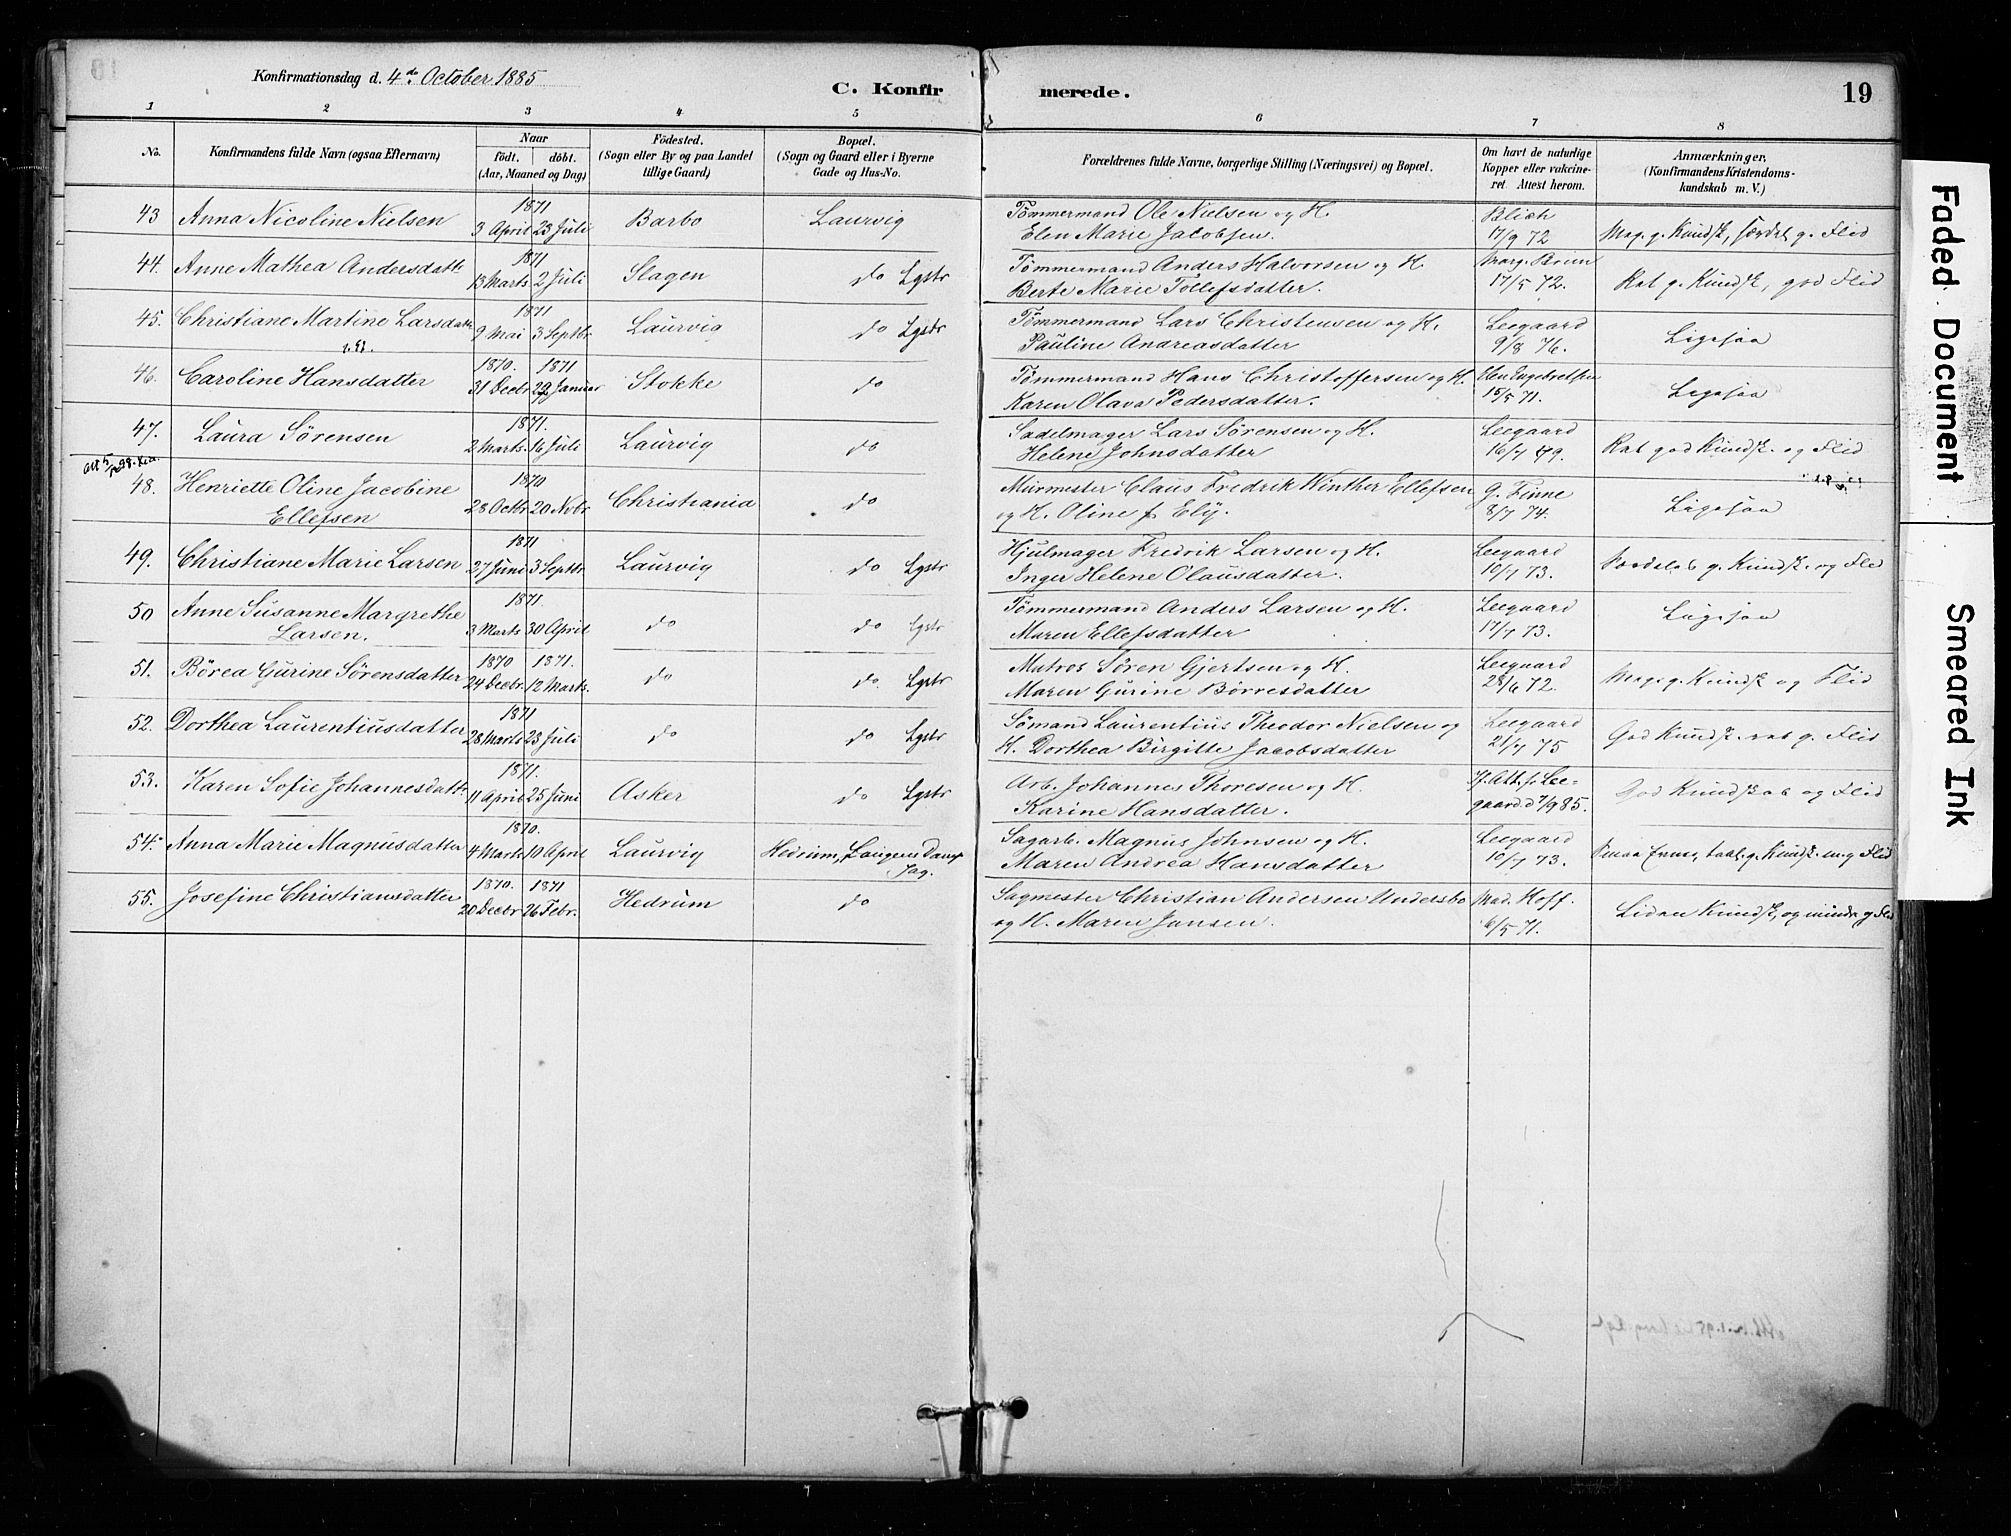 Konfirmationsdag d. 4de October 1885
C. Konfirmerede.
19
1 2 3 4 5 6 7 8
No.
Konfirmandens fulde Navn (ogsaa Efternavn)
Naar
födt. döbt.
(Aar, Maaned og Dag)
Födested.
(Sogn eller By og paa Landet
tillige Gaard)
Bopæl.
(Sogn og Gaard eller i Byerne
Gade og Hus-No.
Forældrenes fulde Navne, borgerlige Stilling (Næringsvei) og Bopæl.
Om havt de naturlige
Kopper eller vakcine-
ret. Attest herom.
Anmærkninger.
(Konfirmandens Kristendoms-
kundskab m. V.)
43 Anna Nicoline Nielsen 1871 3 April 23 Juli Barbo Laurvig Tömmermand Ole Nielsen og H. Blich
Elen Marie Jacobsen. 17/9 72 Meg. g. Kundsk, særdel. g. Flid
44. Anne Mathea Andersdattr 1871 13 Marts 2 Juli Slagen do Lgstr Tömmermand Anders Halvorsen og H. Marg. Bruun
Berte Marie Tollefsdatter. 17/5 72. Rat g. Kundsk, god Flid
45. Christiane Martine Larsdattr 1871 9 Mai 3 Septbr Laurvig do Lgstr Tömmermand Lars Christensen og H. Leegaard
Pauline Andreasdatter 9/8 76. Ligesaa
46. Caroline Hansdatter 1870. 1871 31 Decbr 29 Januar Stokke do Tömmermand Hans Christoffersen og H. Engebretsen
Karen Olava Pedersdatter. 15/5 71. Ligesaa
47. Laura Sörensen 1871. 2 Marts. 16 Juli Laurvig do Sadelmager Lars Sörensen og H. Leegaard
Helene Johnsdatter 16/7 79. Rat god Kundsk. og Flid
48. Henriette Oline Jacobine 1870 28 Octbr 20 Novbr Christiania do Murmester Claus Fredrik Winther Ellefsen G. Finne
Ellefsen og H. Oline f. Ely. 8/7 74. Ligesaa
49. Christiane Marie Larsen 1871 27 Juni 3 Septbr Laurvig do Lgstr Hjulmager Fredrik Larsen og H. Leegaard
Inger Helene Olausdatter. 10/7 73. g. Kundsk. og Flid
50 Anne Susanne Margrethe 1871. 3 Marts 30 April do do Lgstr Tömmermand Anders Larsen og H. Leegaard
Larsen. Maren Ellefsdatter 17/7 73. Ligesaa
51. Börea Gurine Sörensdatter 1870 1871. 24 Decbr. 12 Marts. do do Lgstr Matros Sören Gjertsen og H. Leegaard
Maren Gurine Börresdatter 28/6 72. Meg. g. Kundsk og Flid
52. Dorthea Laurentiusdatter 1871 28 Marts 23 Juli do do Lgstr Sömand Laurentius Theodor Nielsen og Leegaard
H. Dorthea Birgitte Jacobsdatter 21/7 75 God Kundsk. rat g. Flid
53. Karen Sofie Johannesdattr 1871. 11 April 25 Juni Asker do Lgstr Arb. Johannes Thoresen og H. If. Att. f. Lee-
Karine Hansdatter. gaard d 7/9 85. God Kundskab og Flid
54. Anna Marie Magnusdatter 1870. 4 Marts 10 April Laurvig Hedrum, Laugens Damp Sagarb. Magnus Johnsen og H. Leegaard
Sag. Maren Andrea Hansdatter 10/7 73. Smaa Evner, taal. g. Kundsk. m. g Flid
55. Josefine Christiansdatter 1870. 1871 20 Decbr 26 Febr. Hedrum do Sagmester Christian Andersen Undersbo Mad. Hoff.
og H. Maren Jansen. 6/5 71. Liden Kundsk, og mindr. g Flid
Faded Document
Smeared Ink